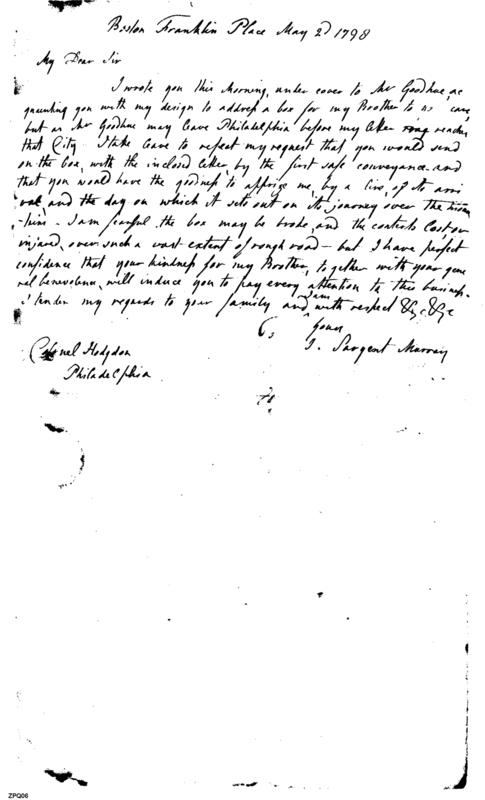 Boston Franklin Place May 2d 1798
My Dear Sir
I wrote you this Morning, under cover to Mr Goodhue, ac
quainting you with my design to address a box for my Brother to your care,
but as Mr Goodhue may leave Philadelphia before my letter reaches
that City I take leave to repeat my request that you would send
on the box, with the inclosed letter, by the first safe conveyance and
that you would have the goodness to apprize me, by a line, of its arri
val, and the day on which it sets out on its journey over the moun
tains - I am fearful the box may be broke, and the contents lost or
injured, over such a vast extent of rough road - but I have perfect
confidence that your kindness for my Brother, together with your gene
ral benevolence, will induce you to pay every attention to this business -
I tender my regards to your family and I am with respect &c &c
Yours
J. Sargent Murray
Colonel Hodgdon
Philadelphia
ZPQ06